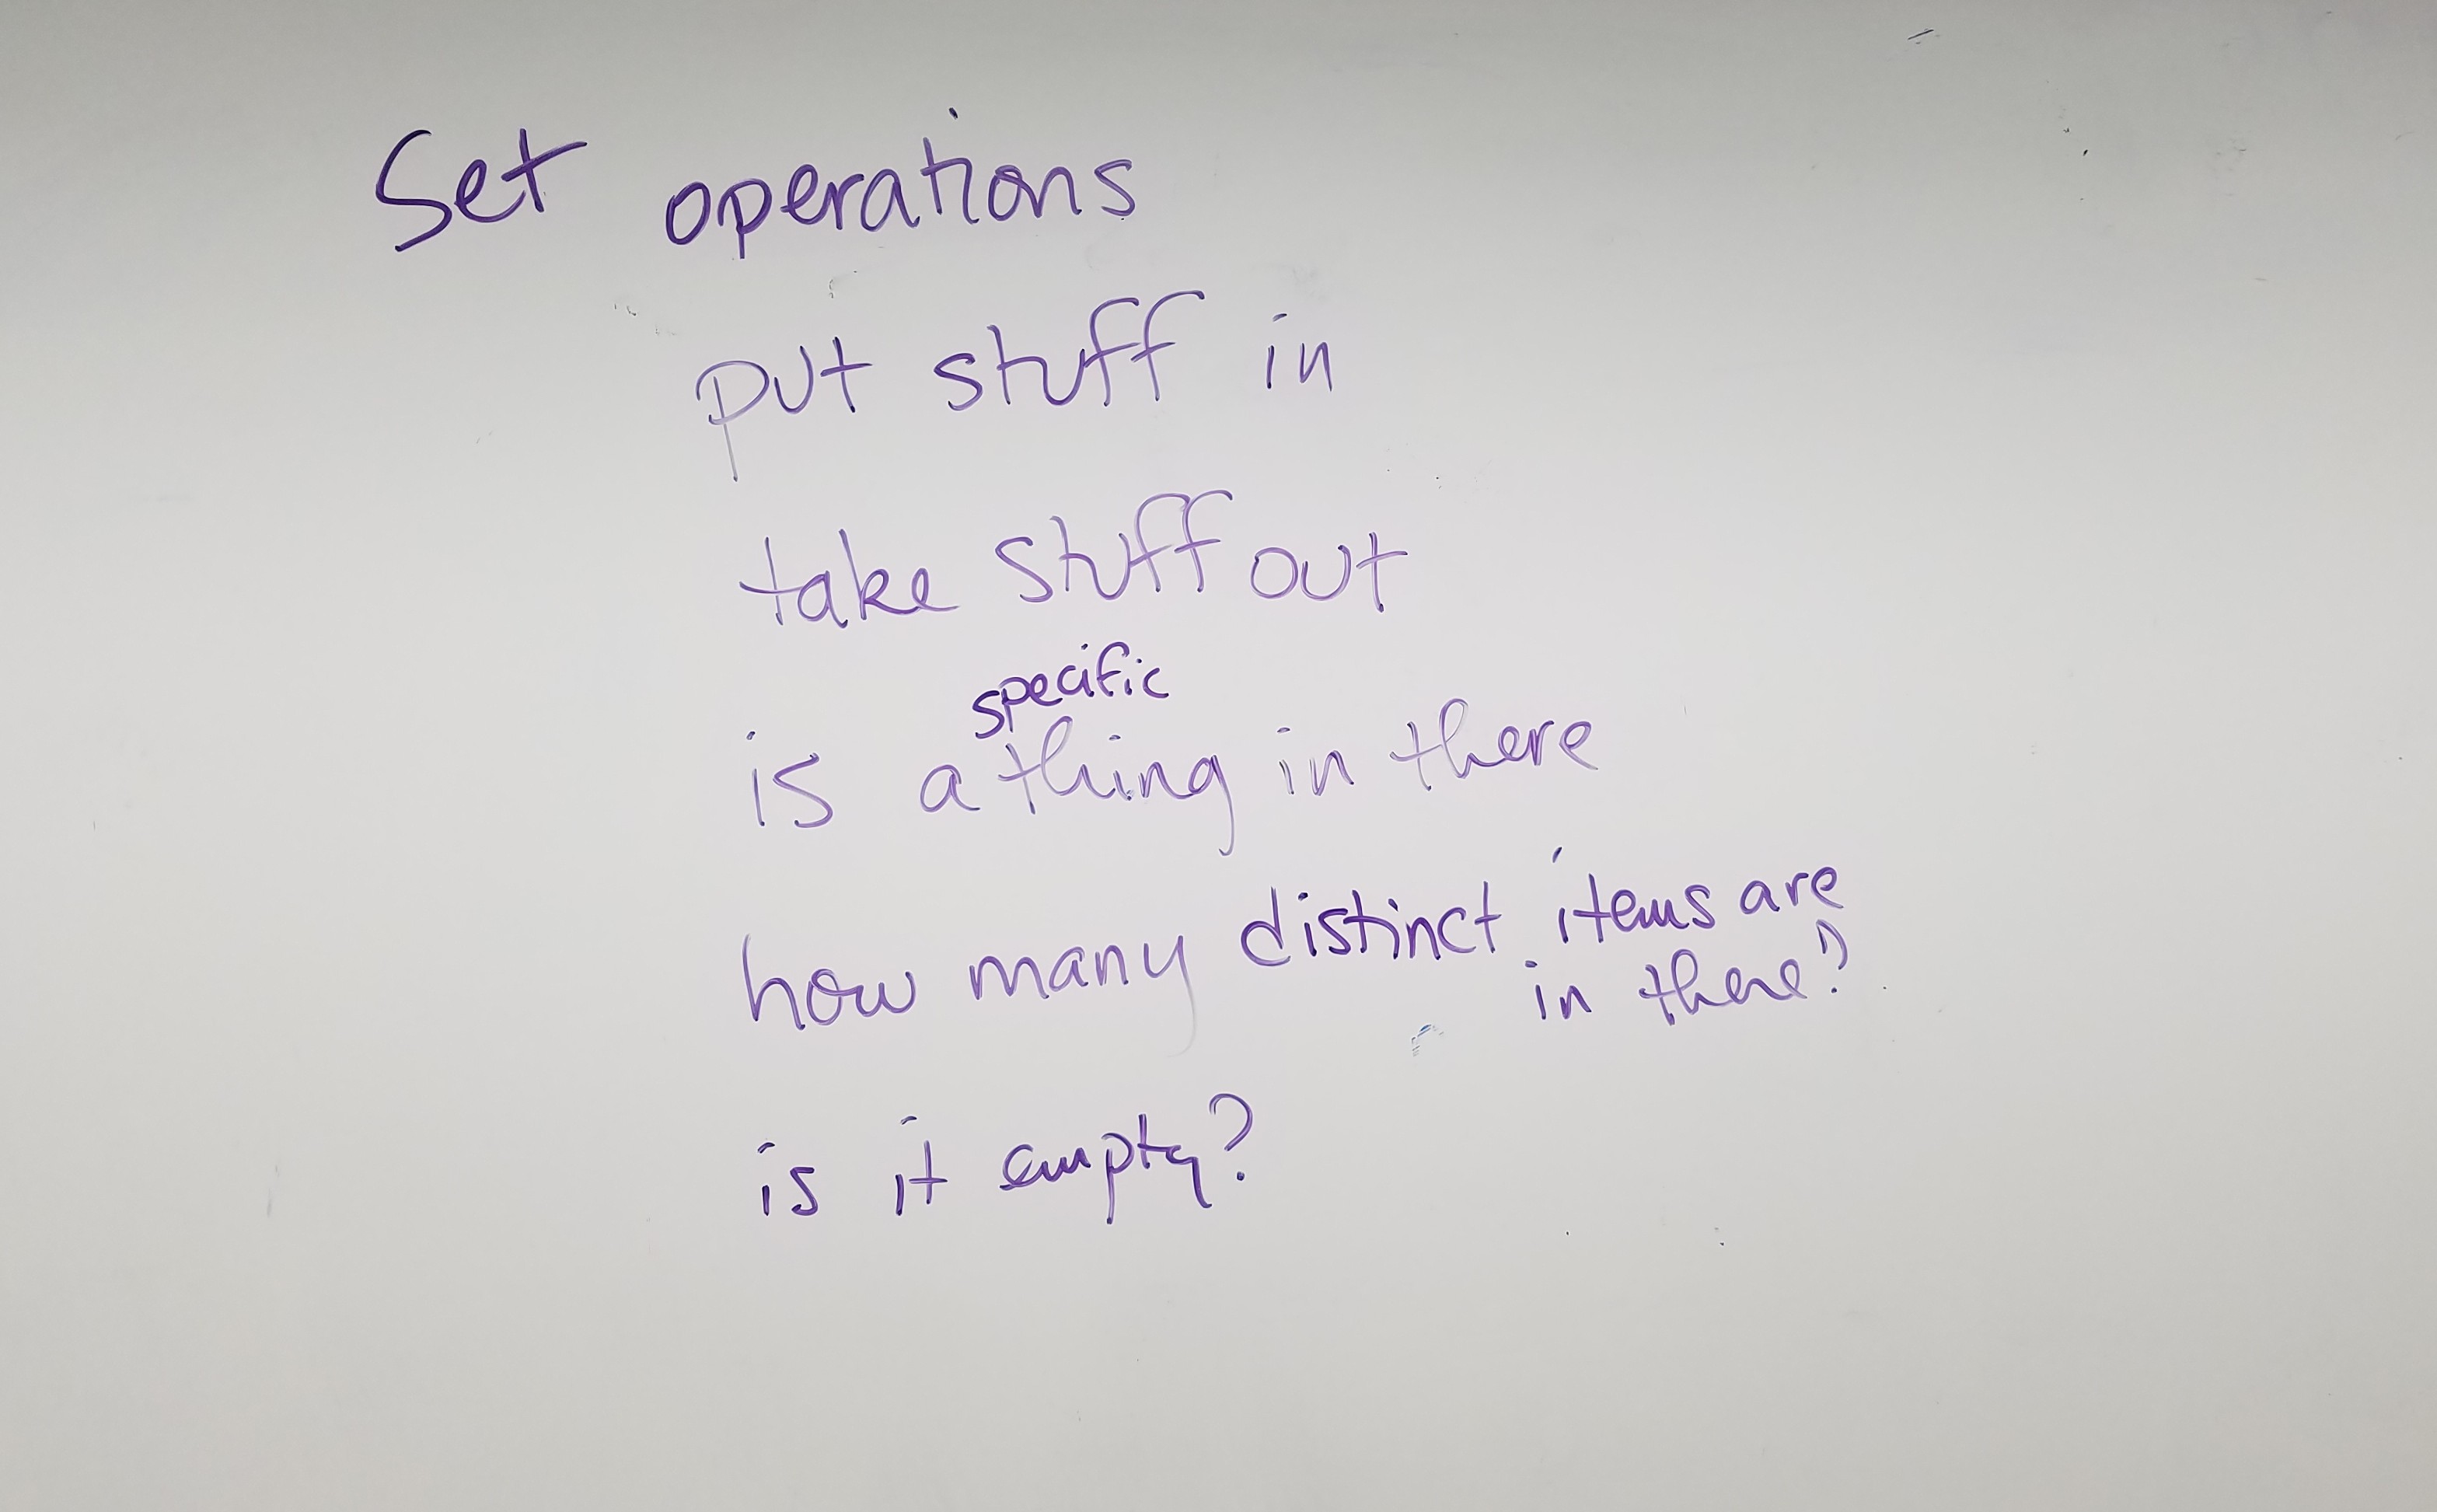 Set operations
put stuff in
take stuff out
specific
is a thing in there
how many distinct items are
in there?
is it empty?